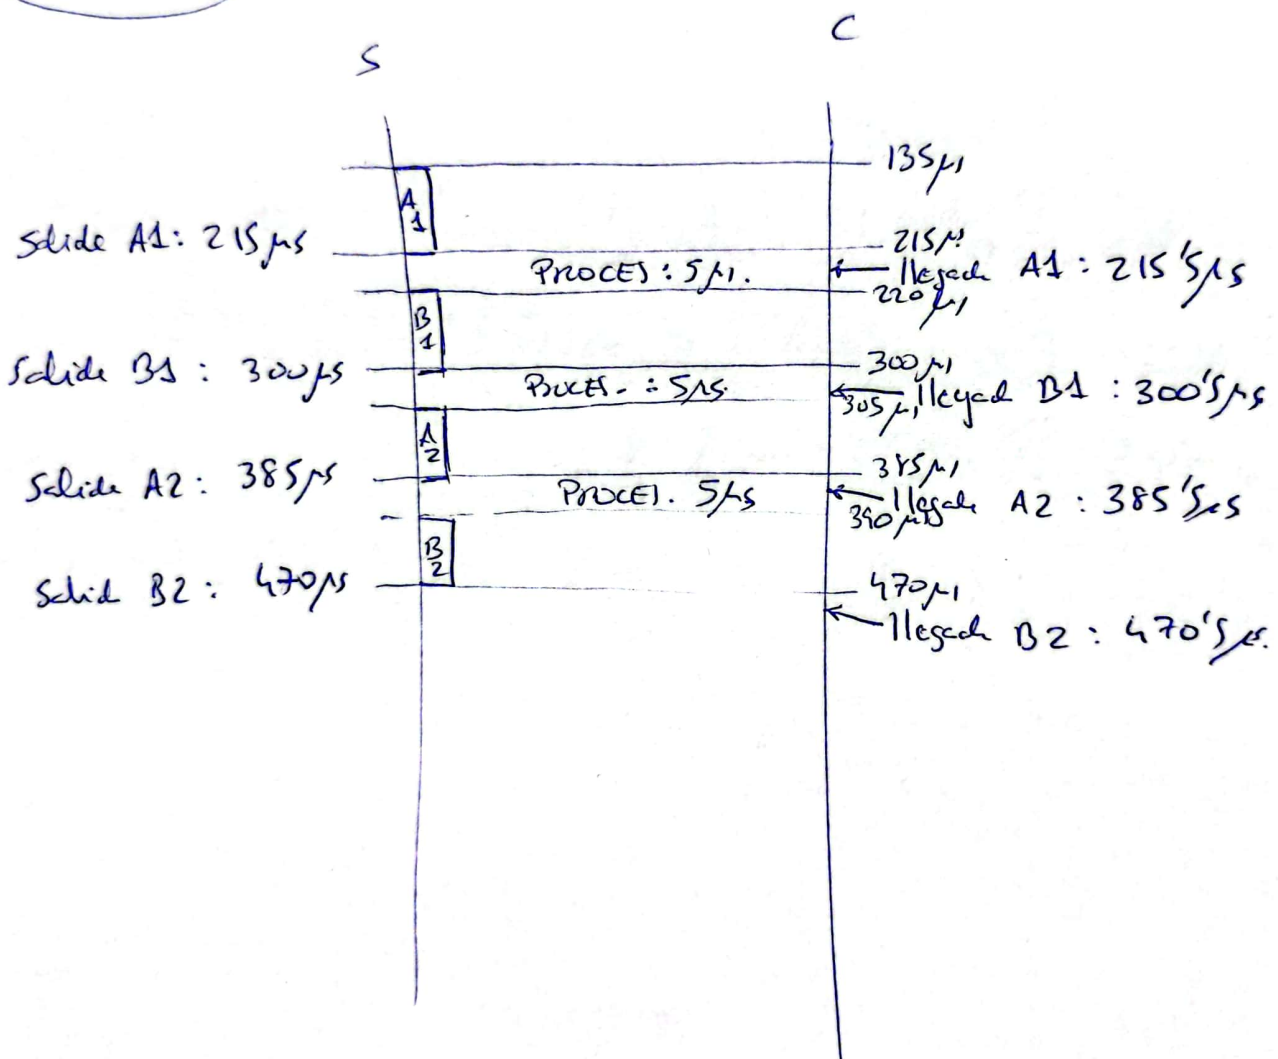 S
C
135 µs
A
1
Salida A1: 215 µs
215 µs
PROCES: 5 µs.
llegada A1: 215'5 µs
220 µs
B
1
Salida B1: 300 µs
300 µs
PROCES.: 5 µs.
305 µs
llegada B1: 300'5 µs
A
2
Salida A2: 385 µs
385 µs
PROCES. 5 µs
llegada A2: 385'5 µs
390 µs
B
2
Salida B2: 470 µs
470 µs
llegada B2: 470'5 µs.